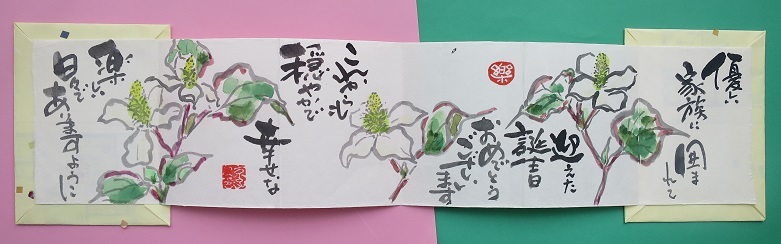 優しい
家族に
囲ま
れて
迎えた
誕生日
おめでとう
ござい
ます
これからも
穏やかで
幸せな
楽しい
日々で
ありますように
楽